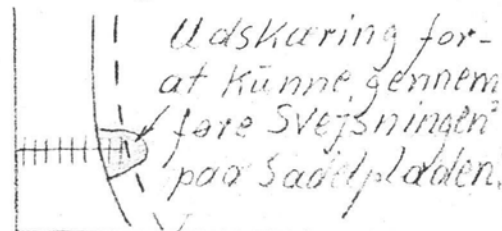 Udskæring for-
at kunne gennem
føre Svejsningen
paa Sadelpladen.